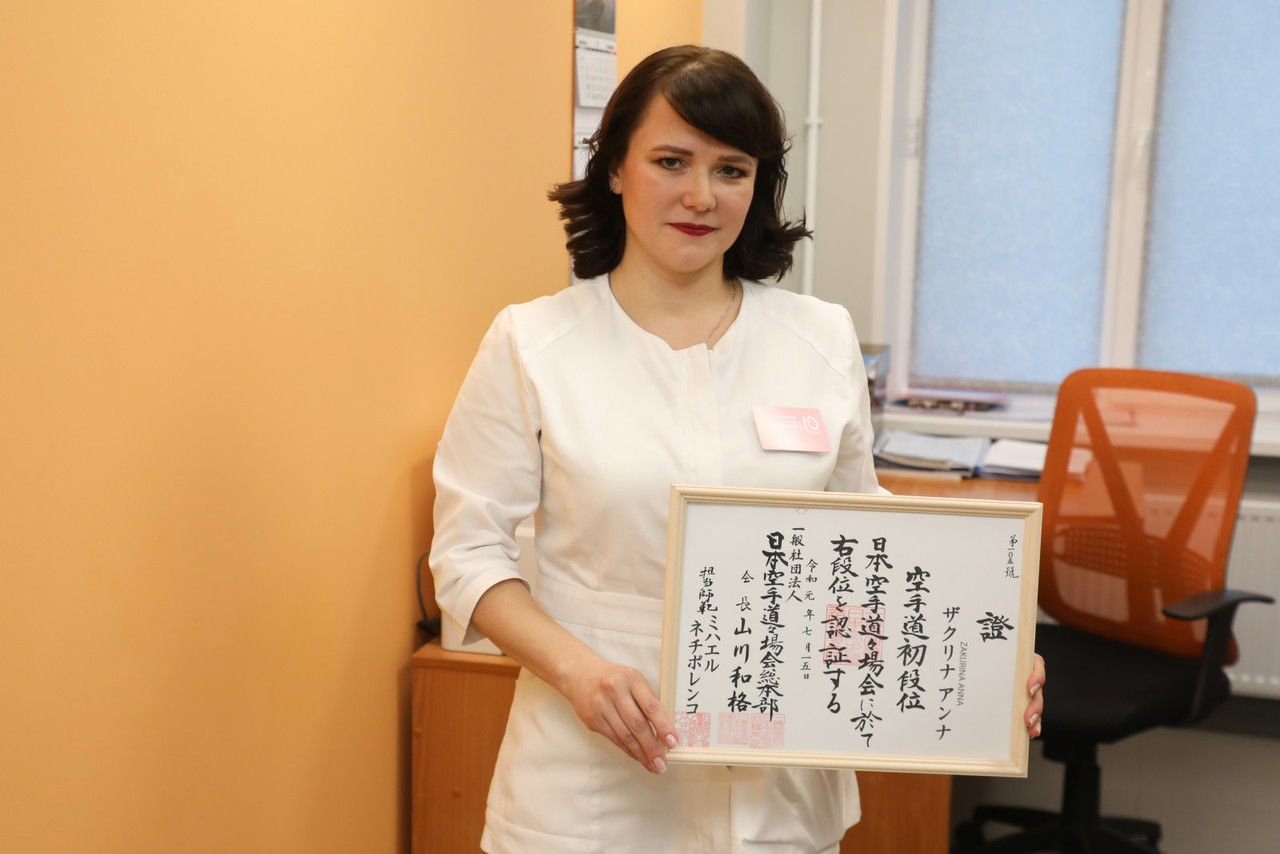 第一〇五號
證
ZAKURINA ANNA
ザクリナ アンナ
空手道初段位
日本空手道々場会に於て
右段位を認証する
令和元年七月一五日
一般社団法人
日本空手道々場会総本部
会長山川和格
担当師範ミハエル
ネチポレンコ
10